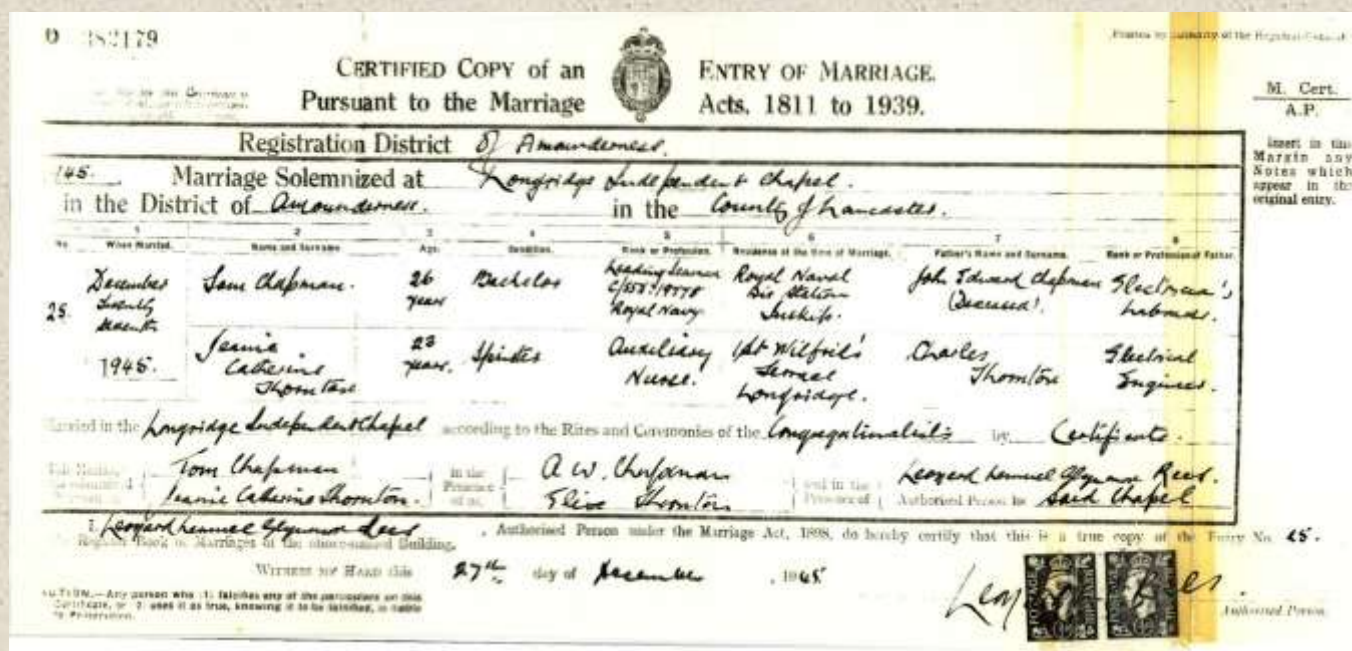 382179
CERTIFIED COPY of an ENTRY OF MARRIAGE.
Pursuant to the Marriage Acts, 1811 to 1939.
M. Cert.
A.P.
Insert in this
Margin any
Notes which
appear in the
original entry.
Registration District of Amounderness.
145. Marriage Solemnized at Longridge Independent Chapel.
in the District of Amounderness. in the County of Lancaster.
1 2 3 4 5 6 7 8
No. When Married. Name and Surname Age. Condition. Rank or Profession. Residence at the time of Marriage. Father's Name and Surname. Rank or Profession of Father.
25. December Twenty Seventh 1945.
Tom Chapman. 26 years Bachelor Leading Seaman Royal Navy Royal Naval Air Station Inskip. John Edward Chapman (Deceased). Electrician's Labourer.
Jeanie Catherine Thornton 23 years. Spinster Auxiliary Nurse. St Wilfrid's Terrace Longridge. Charles Thornton Electrical Engineer.
Married in the Longridge Independent Chapel according to the Rites and Ceremonies of the Congregationalists by Certificate.
Tom Chapman in the Presence of us, A. W. Chapman and in the Presence of Rees.
Jeanie Catherine Thornton. Thornton Authorised Person for said Chapel
I, Rees, Authorised Person under the Marriage Act, 1898, do hereby certify that this is a true copy of the Entry No. 25.
Register Book of Marriages of the above-named Building.
WITNESS MY HAND this 27th day of December, 1945
CAUTION.—Any person who (1) falsifies any of the particulars on this
Certificate, or (2) uses it as true, knowing it to be falsified, is liable
to Prosecution.
Authorised Person.